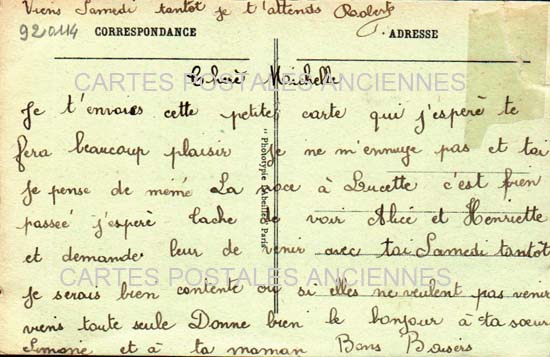 Viens Samedi tantot je t'attends Robert
920114
CORRESPONDANCE
ADRESSE
CARTES POSTALES ANCIENNES
Cheré Michelle
Je t'envoies cette petite carte qui j'esperè te
fera beaucoup plaisir Je ne m'ennuye pas et tai
je pense de mémé La noce à Lucette c'est bien
passeé j'esperè tache de voir Alicé et Henriette
et demande leur de venir avec tai Samedi tantot
CARTES POSTALES ANCIENNES
Je serais bien content ou si elles ne veulent pas venir
viens toute seule Donne bien le bonjour à ta sœur
Simone et à ta maman Bons Baisérs
" Phototypie Labeille, Paris "